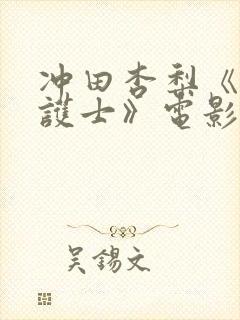 冲田杏梨《
護士》電影
吴錫文